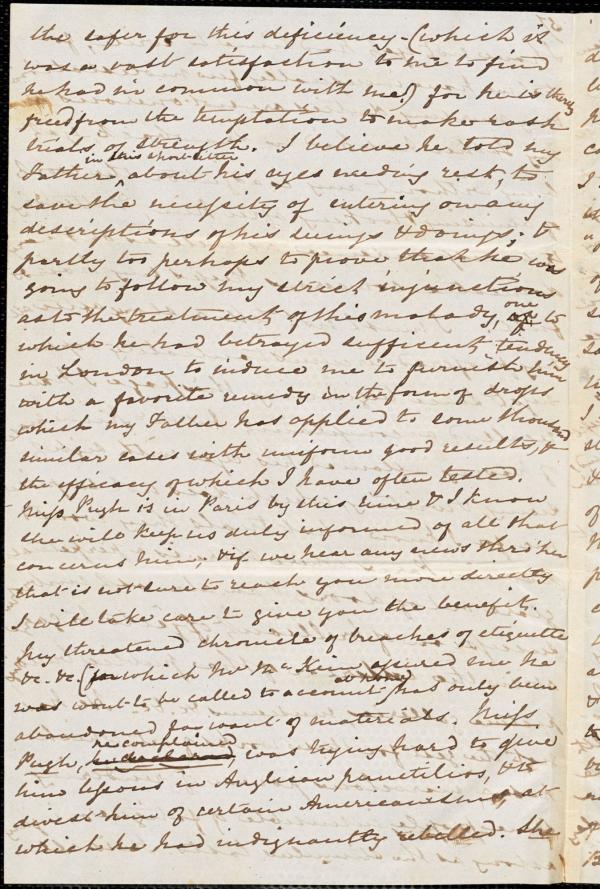 the safer for this deficiency (which it
was a vast satisfaction to me to find
he had in common with me) for he is thereby
freed from the temptation to make rash
trials of strength. I believe he told my
Father in this short letter about his eyes needing rest, to
save the necessity of entering on any
descriptions of his seeings & doings; &
partly too perhaps to prove that he was
going to follow my strict injunctions
as to the treatment of this malady, one to
which he had betrayed sufficient tendency
in London to induce me to furnish him
with a favorite remedy in the form of drops
which my Father has applied to some thousand
similar cases with uniform good results, &
the efficacy of which I have often tested.
Miss Pugh is in Paris by this time & I know
she will keep us duly informed of all that
concerns him; & if we hear any news thro' her
that is not sure to reach you more directly
I will take care to give you the benefit.
My threatened chronicle of breaches of etiquette
&c. &c. (for which Mr McKim assured me he
was wont to be called to account at home) has only been
abandoned for want of materials. Miss
Pugh, was trying hard to give
him lessons in Anglican punctilios, & to
divest him of certain Americanisms, at
which he had indignantly rebelled. She